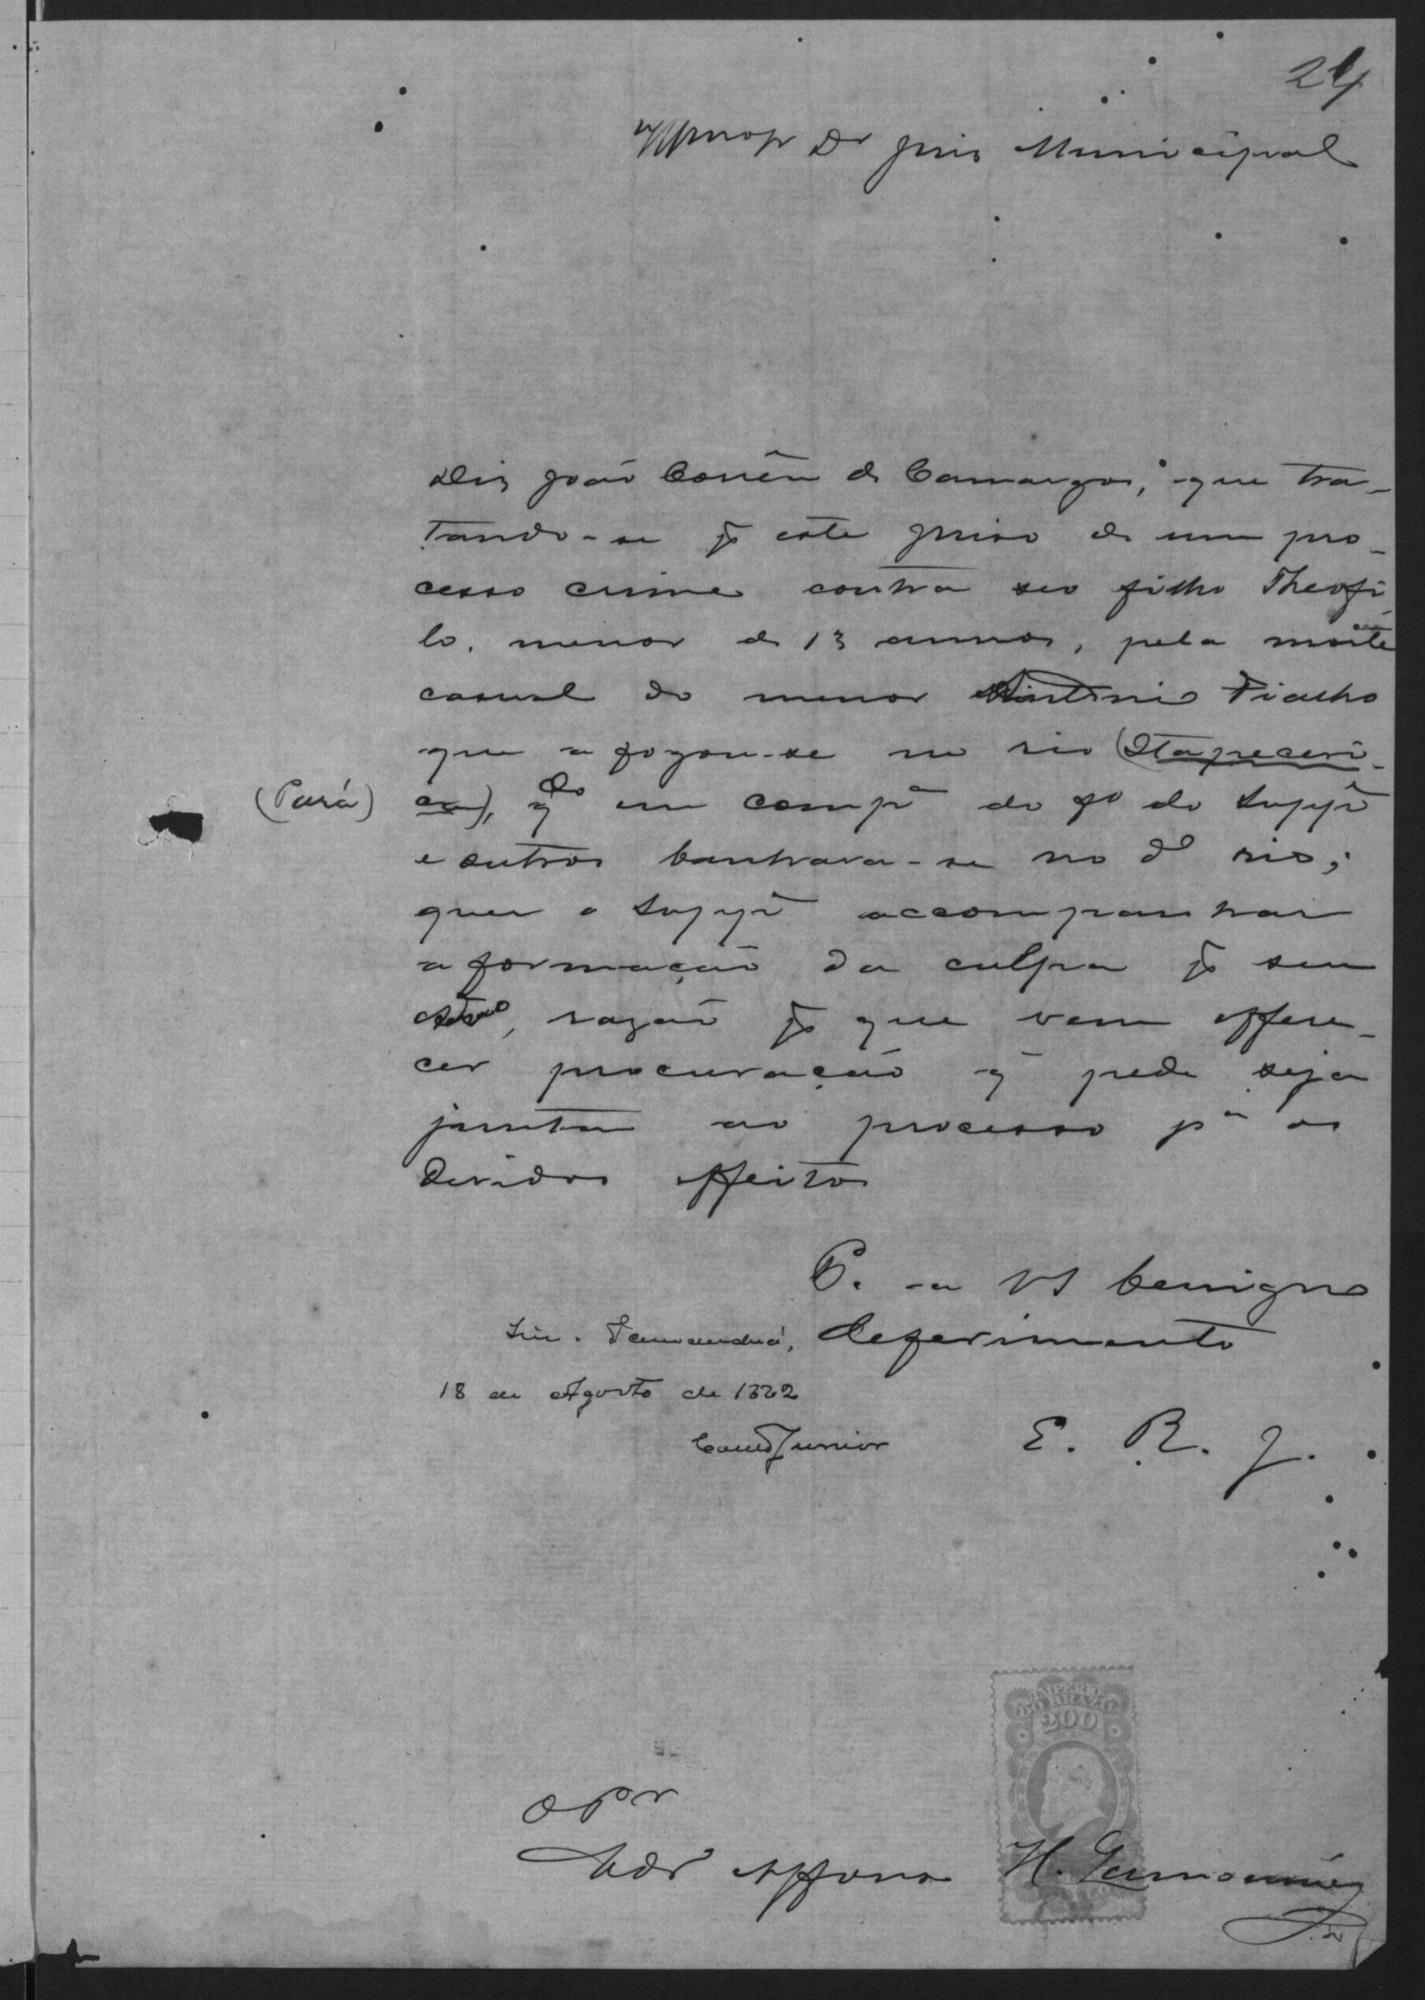 24
Illmo Snr Dr Juis Municipal
Diz João Corrêa de Camargos, que tra-
tando-se pr este juiso de um pro-
cesso crime contra seo filho Theofi
lo, menor de 13 annos, pela morte
casual do menor Antonio Fialho
que afogou-se no rio (Itapeceri-
(Pará)
ca), qdo em compa do fo do Suppe
e outros banhava-se no do rio;
quer o Suppe accompanhar
a formação da culpa pr seu
Advo, razão pr que vem offere-
cer procuração q pede seja
junta ao processo pa os
devidos effeitos
P. a VS benigno
deferimento
Sim. Tamanduá,
18 de Agosto de 1882
Junior
E. R. J.
IMPERIO
DO BRAZIL
200
O Por
Advo Affonso H.